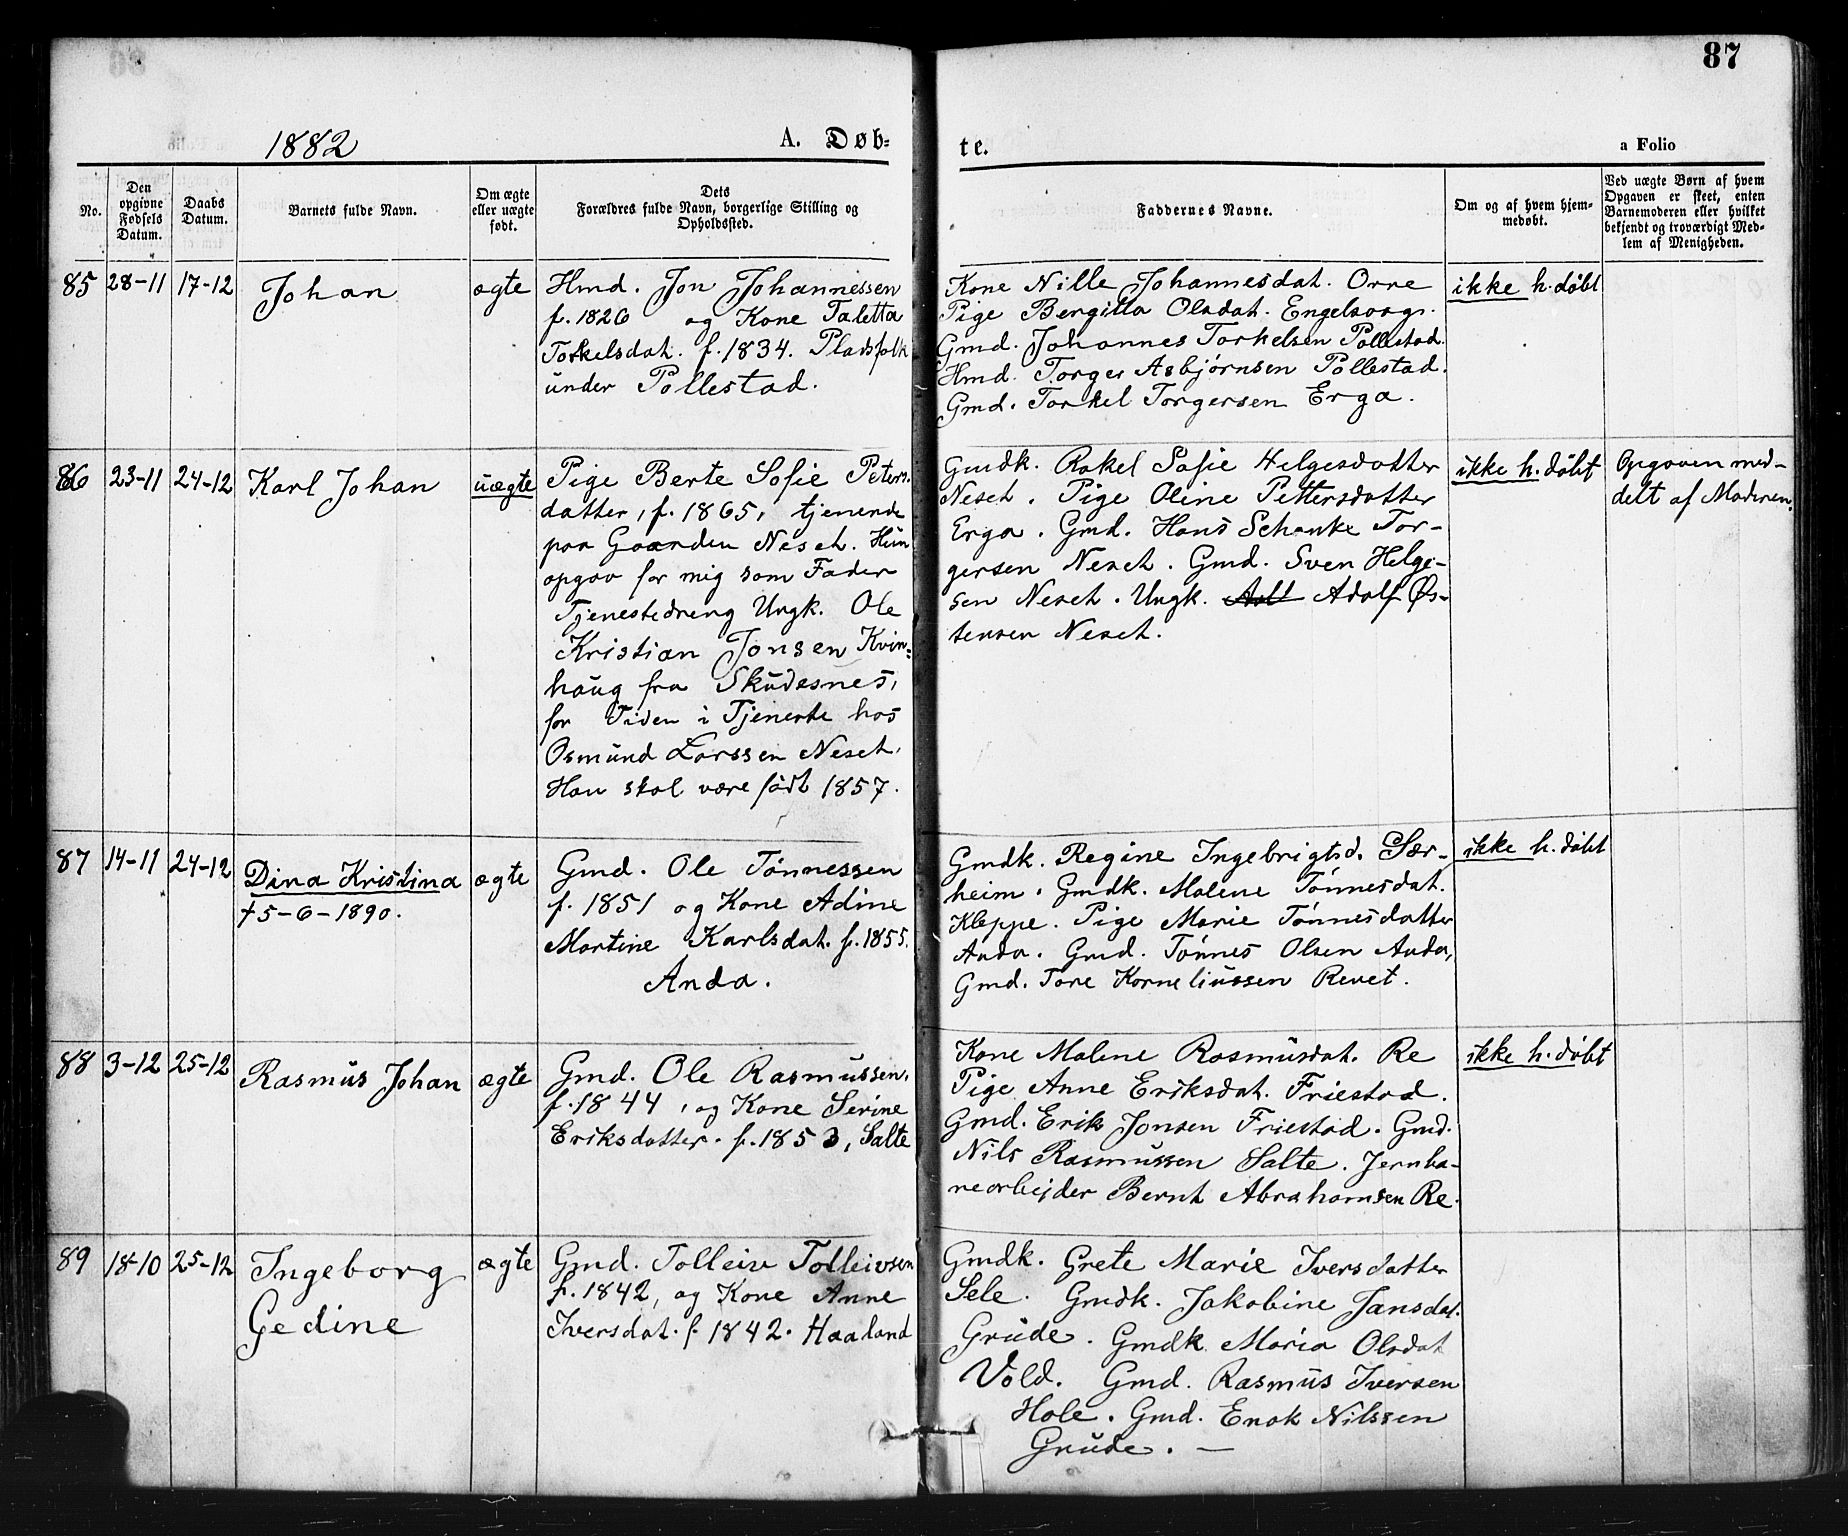 87
1882
A. Døb-
te.
a Folio
No.
Den opgivne Fødsels Datum.
Daabs Datum.
Barnets fulde Navn.
Om ægte eller uægte født.
Dets Forældres fulde Navn, borgerlige Stilling og Opholdssted.
Faddernes Navne.
Om og af hvem hjemmedøbt.
Ved uægte Børn af hvem Opgaven er skeet, enten Barnemoderen eller hvilket bekjendt og troværdigt Medlem af Menigheden.
85 28-11 17-12 Johan ægte
Hmd. Jon Johannessen
f. 1826 og Kone Taletta
Torkelsdat. f. 1834. Pladsfolk
under Pollestad.
Kone Nille Johannesdat. Orre
Pige Bergitta Olsdat. Engelsvog.
Gmd. Johannes Torkelsen Pollestad.
Hmd. Torger Asbjørnsen Pollestad.
Gmd. Torkel Torgersen Erga.
ikke h. døbt
86 23-11 24-12 Karl Johan uægte
Pige Berte Sofie Peters-
datter, f. 1865, tjenende
paa Gaarden Neset. Hun
opgav for mig som Fader
Tjenestedreng Ungk. Ole
Kristian Jonsen Kvin-
haug fra Skudesnes,
for Tiden i Tjeneste hos
Osmund Larssen Neset.
Han skal være født 1857.
Gmdk. Rakel Sofie Helgesdatter
Neset. Pige Oline Pettersdatter
Erga. Gmd. Hans Schanke Tor-
gersen Neset. Gmd. Sven Helge-
sen Neset. Ungk. Adolf Øs-
tensen Neset.
ikke h. døbt
Opgaven med-
delt af Moderen.
87 14-11 24-12 Dina Kristina ægte
† 5-6-1890.
Gmd. Ole Tønnessen
f. 1851 og Kone Adine
Martine Karlsdat. f. 1855.
Anda.
Gmdk. Regine Ingebrigtsd. Sær-
heim. Gmdk. Malene Tønnesdat.
Kleppe. Pige Marie Tønnesdatter
Anda. Gmd. Tønnes Olsen Anda,
Gmd. Tore Korneliussen Revet.
ikke h. døbt
88 3-12 25-12 Rasmus Johan ægte
Gmd. Ole Rasmussen,
f. 1844, og Kone Serine
Eriksdatter. f. 1853, Salte
Kone Malene Rasmusdat. Re
Pige Anne Eriksdat. Friestad.
Gmd. Erik Jonsen Friestad. Gmd.
Nils Rasmussen Salte. Jernba-
nearbejder Bernt Abrahamsen Re.
ikke h. døbt
89 18-10 25-12 Ingeborg ægte
Gedine
Gmd. Tolleiv Tolleivsen
f. 1842, og Kone Anne
Iversdat. f. 1842. Haaland
Gmdk. Grete Marie Iversdatter
Sele. Gmdk. Jakobine Jansdat.
Grude. Gmdk. Maria Olsdat
Vold. Gmd. Rasmus Iversen
Hole. Gmd. Enok Nilssen
Grude. —